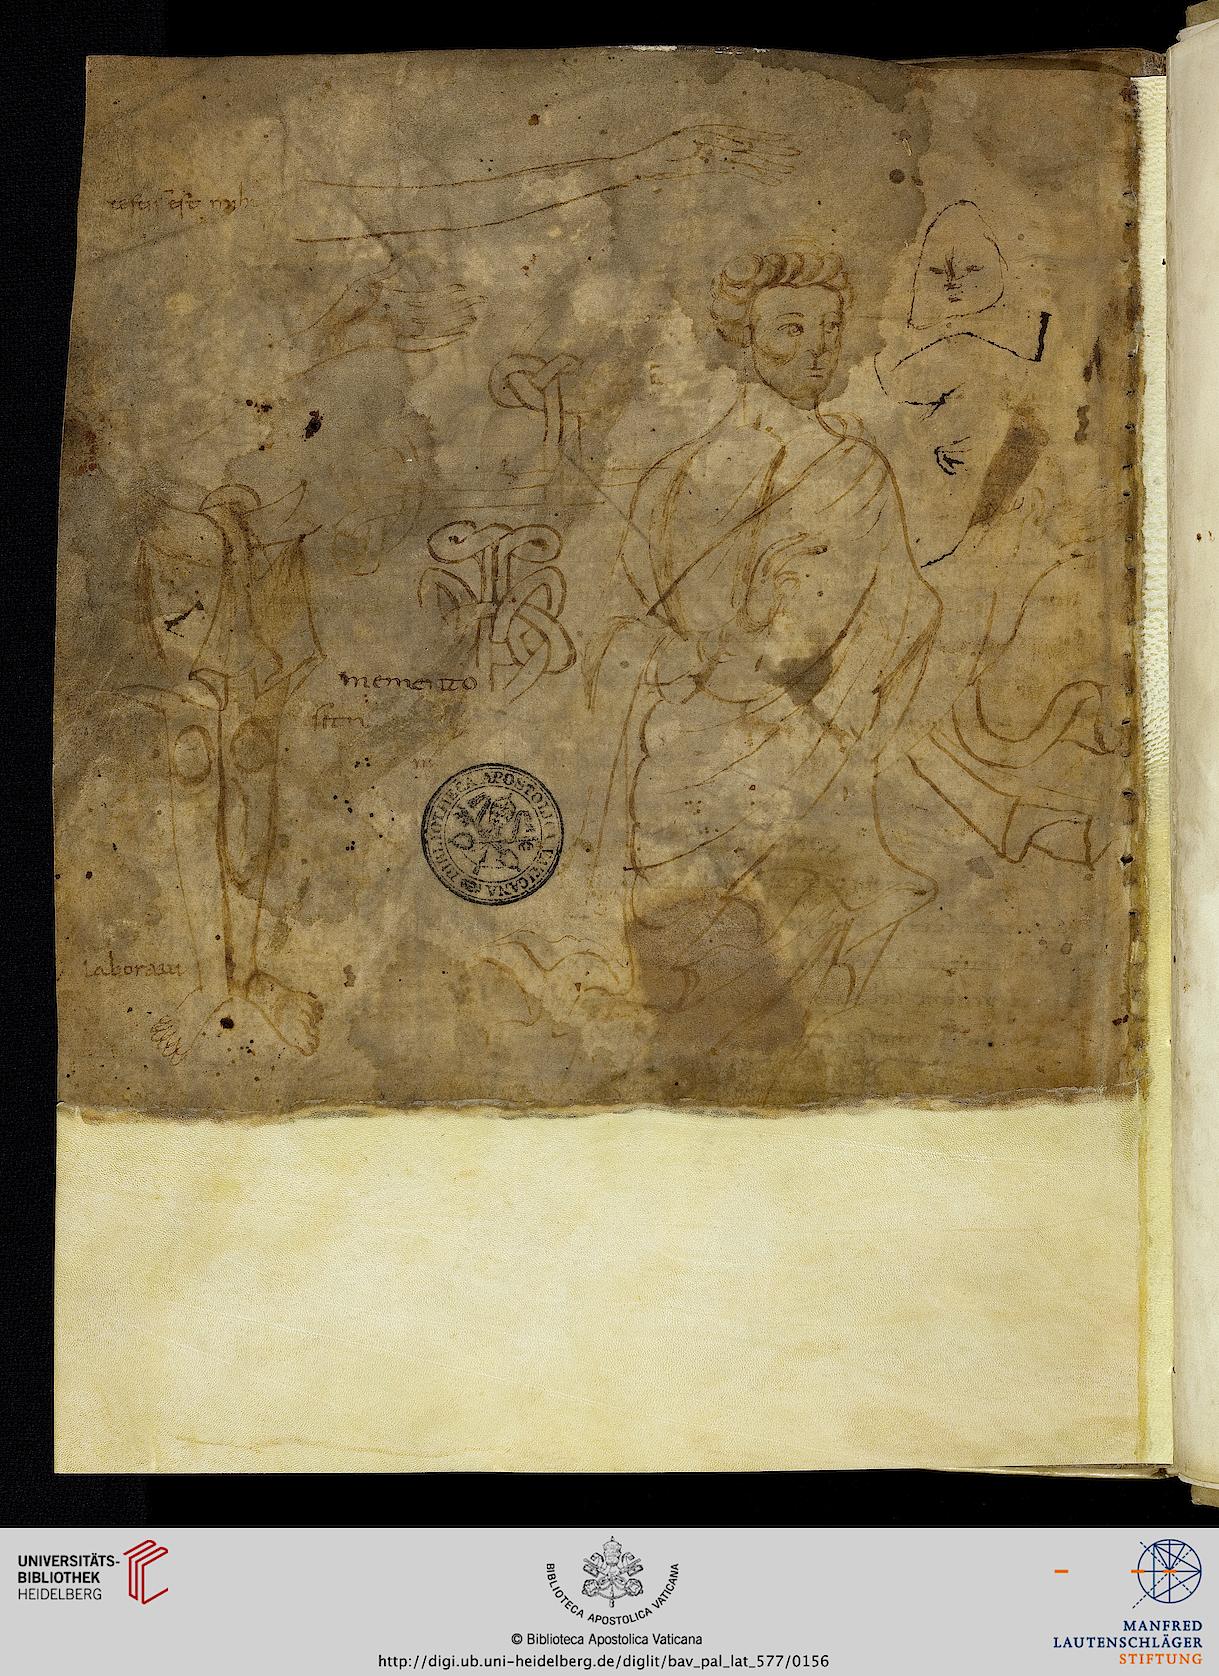 memento
BIBLIOTHECA APOSTOLICA VATICANA
UNIVERSITÄTS-
BIBLIOTHEK
HEIDELBERG
BIBLIOTECA APOSTOLICA VATICANA
© Biblioteca Apostolica Vaticana
http://digi.ub.uni-heidelberg.de/diglit/bav_pal_lat_577/0156
MANFRED
LAUTENSCHLÄGER
STIFTUNG